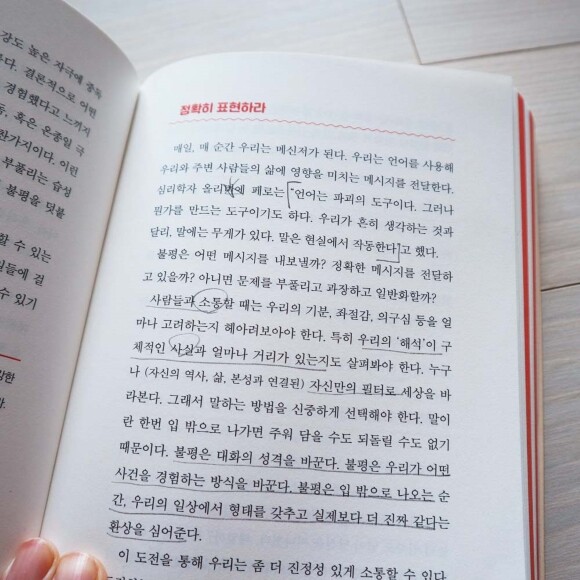 강도 높은 자극에 중독
다. 결론적으로 어떤
경험했다고 느끼지
혹은 온종일 극
찬가지이다. 이런
부풀리는 습성
불평을 덧붙
할 수 있는
일들에 걸
수 있기
정확히 표현하라
매일, 매 순간 우리는 메신저가 된다. 우리는 언어를 사용해
우리와 주변 사람들의 삶에 영향을 미치는 메시지를 전달한다.
심리학자 올리 페로는 "언어는 파괴의 도구이다. 그러나
뭔가를 만드는 도구이기도 하다. 우리가 흔히 생각하는 것과
달리, 말에는 무게가 있다. 말은 현실에서 작동한다"고 했다.
불평은 어떤 메시지를 내보낼까? 정확한 메시지를 전달하
고 있을까? 아니면 문제를 부풀리고 과장하고 일반화할까?
사람들과 소통할 때는 우리의 기분, 좌절감, 의구심 등을 얼
마나 고려하는지 헤아려보아야 한다. 특히 우리의 '해석'이 구
체적인 사실과 얼마나 거리가 있는지도 살펴봐야 한다. 누구
나 (자신의 역사, 삶, 본성과 연결된) 자신만의 필터로 세상을 바
라본다. 그래서 말하는 방법을 신중하게 선택해야 한다. 말이
란 한번 입 밖으로 나가면 주워 담을 수도 되돌릴 수도 없기
때문이다. 불평은 대화의 성격을 바꾼다. 불평은 우리가 어떤
사건을 경험하는 방식을 바꾼다. 불평은 입 밖으로 나오는 순
간, 우리의 일상에서 형태를 갖추고 실제보다 더 진짜 같다는
환상을 심어준다.
이 도전을 통해 우리는 좀 더 진정성 있게 소통할 수 있다.